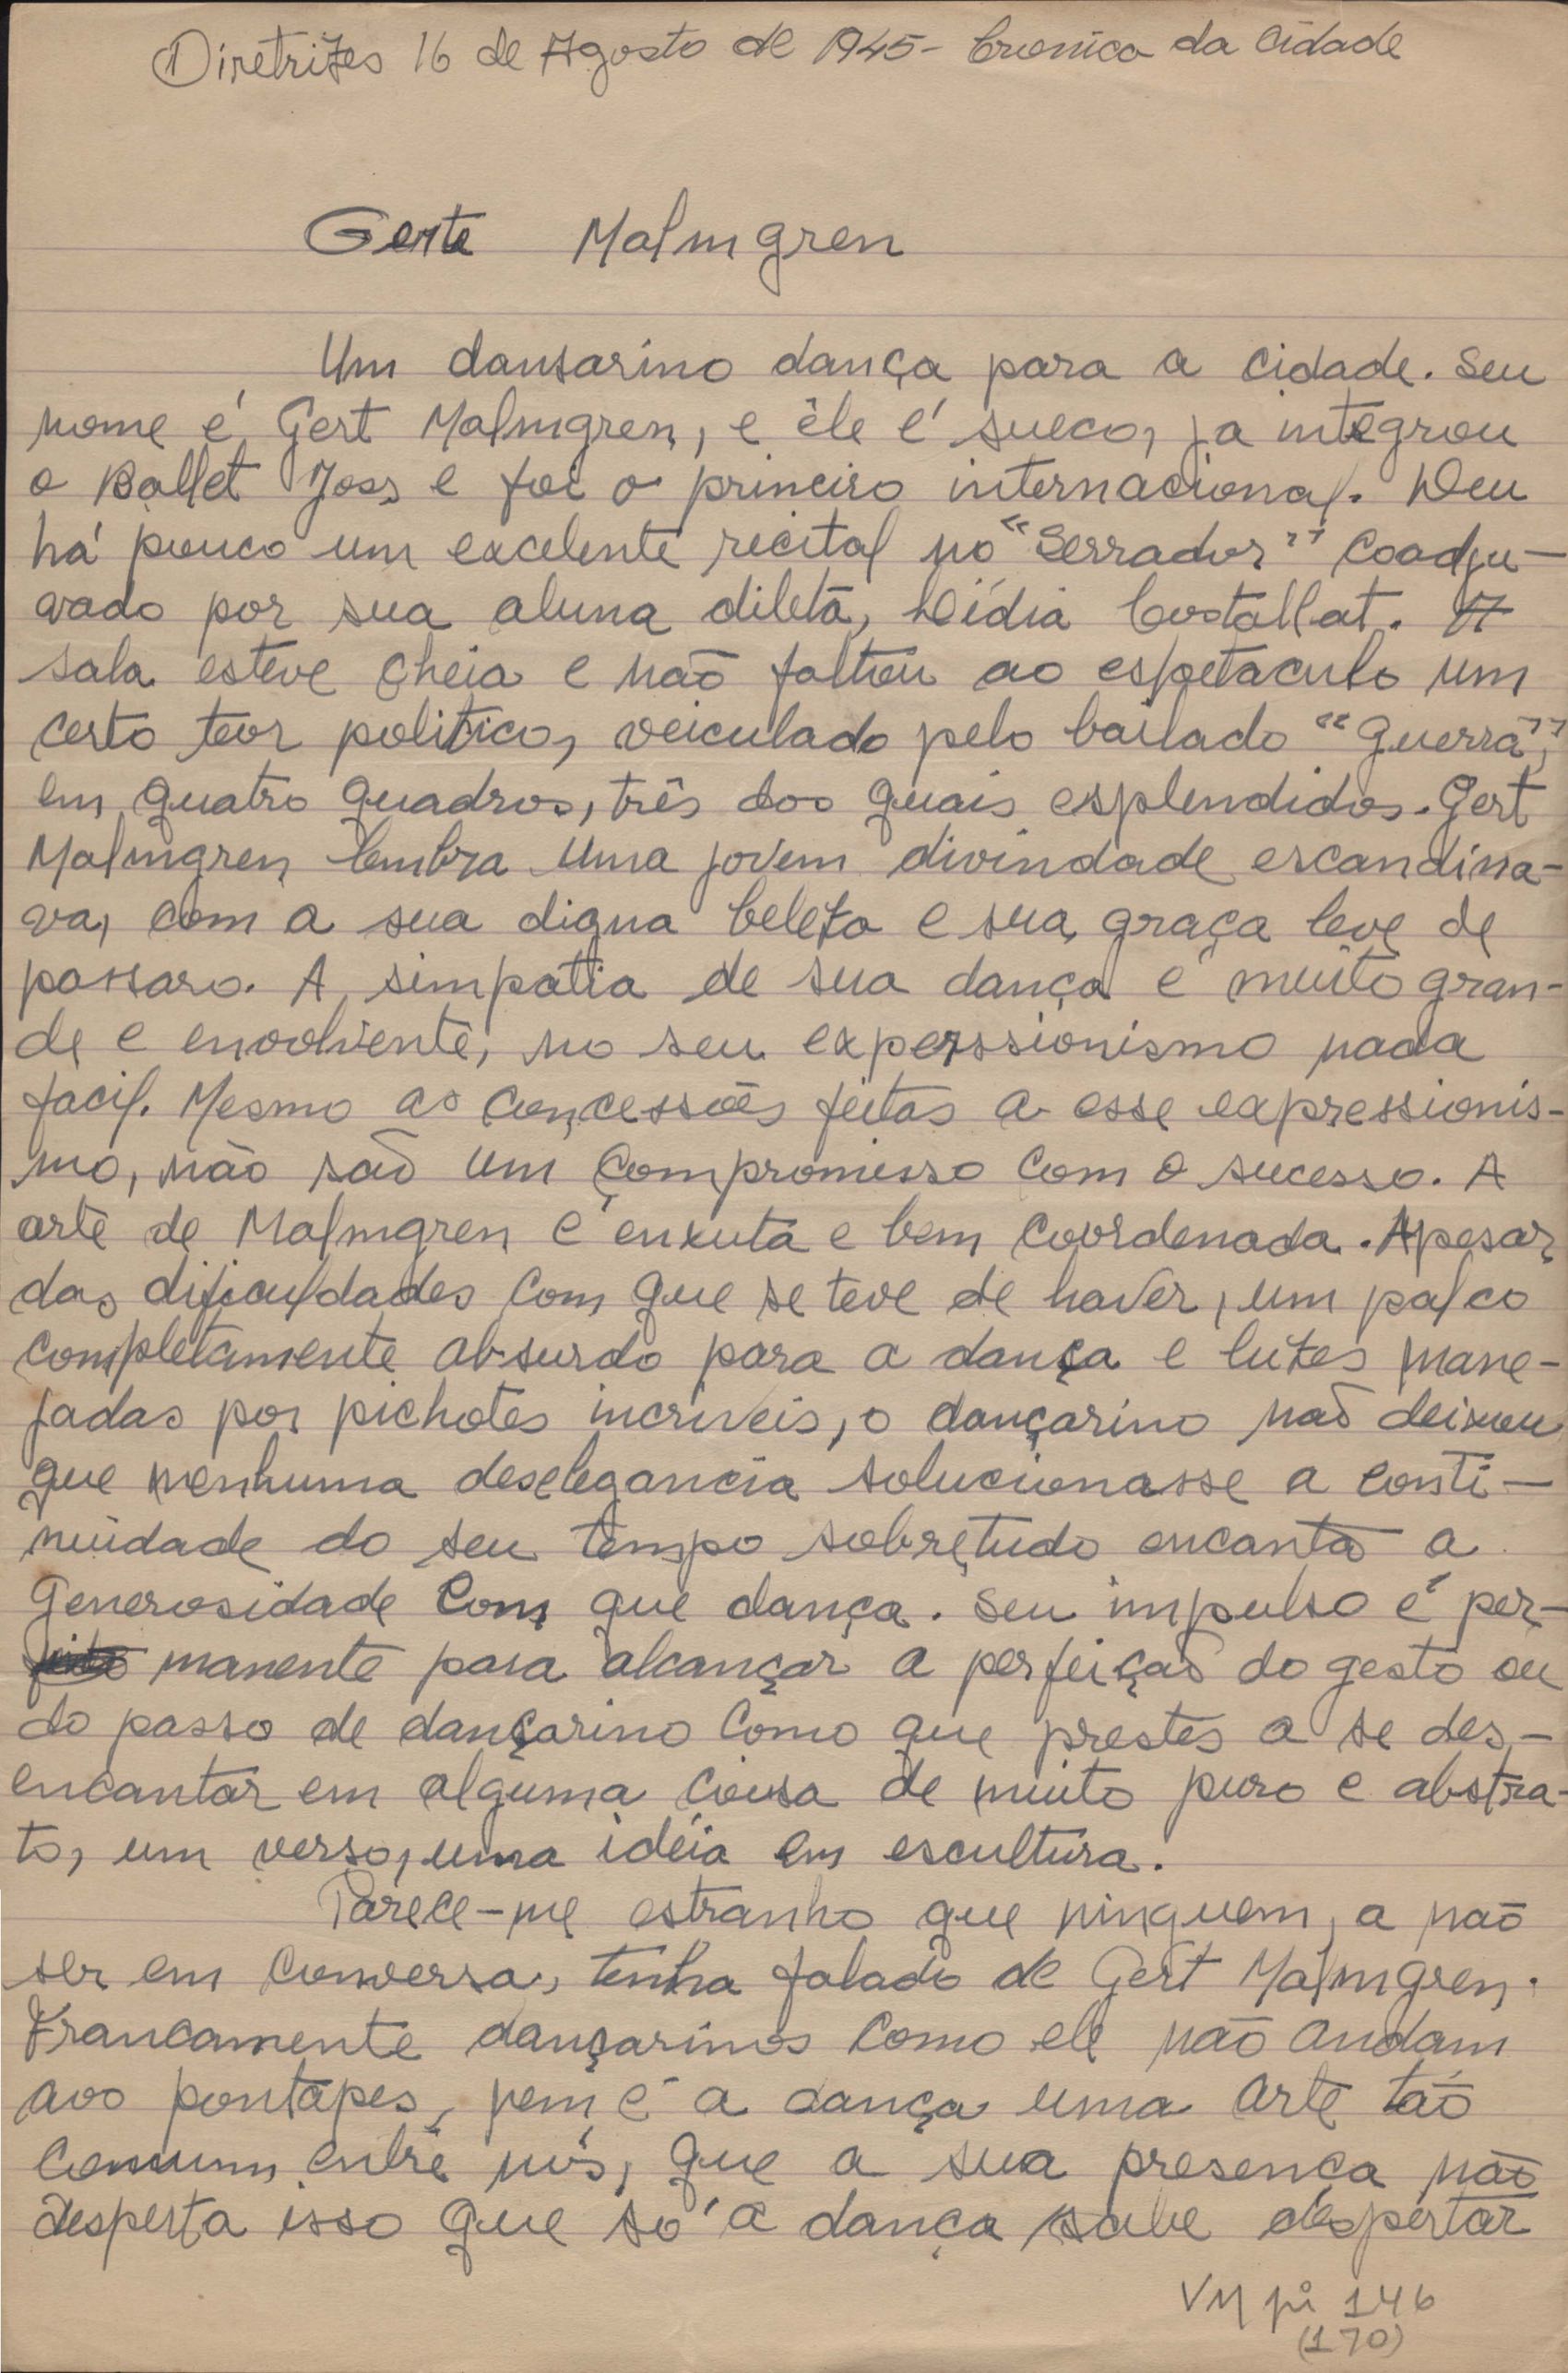 ① Diretrizes 16 de Agosto de 1945 - Cronica da Cidade
Gerte Malmgren
Um dansarino dança para a cidade. Seu
nome é Gert Malmgren, e êle é sueco, ja integrou
o Ballet Joss e foi o primeiro internacional. Deu
há pouco um excelente recital no "Serrador" coadju-
vado por sua aluna dileta, Dídia Costallat. A
sala esteve cheia e não faltou ao espetaculo um
certo teor politico, veiculado pelo bailado "Guerra",
em quatro quadros, três dos quais esplendidos. Gert
Malmgren lembra uma jovem divindade escandina-
va, com a sua digna beleza e sua graça leve de
passaro. A simpatia de sua dança é muito gran-
de e envolvente, no seu experssionismo nada
facil. Mesmo as concessões feitas a esse expressionis-
mo, não são um compromisso com o sucesso. A
arte de Malmgren é enxuta e bem coordenada. Apesar
das dificuldades com que se teve de haver, um palco
completamente absurdo para a dança e luzes mane-
jadas por pichotes incriveis, o dançarino não deixou
que nenhuma deselegancia solucionasse a conti-
nuidade do seu tempo sobretudo encanta a
generosidade com que dança. Seu impulso é per-
manente para alcançar a perfeição do gesto ou
do passo de dançarino como que prestes a se des-
encantar em alguma coisa de muito puro e abstra-
to, um verso, uma idéia em escultura.
Parece-me estranho que ninguem, a não
ser em conversa, tenha falado de Gert Malmgren.
Francamente dançarinos como ele não andam
aos pontapes, nem é a dança uma arte tão
comum entre nós, que a sua presença não
desperta isso que só a dança sabe despertar
VM pi 146
(170)